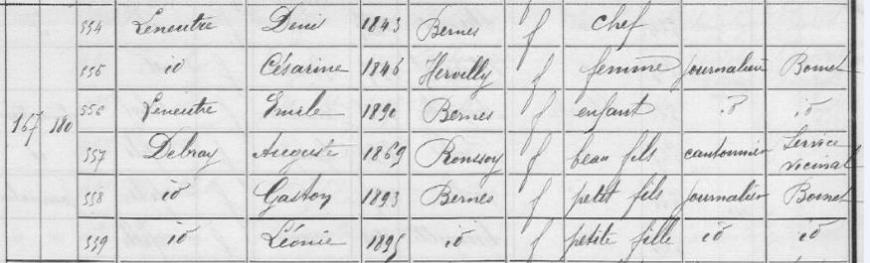 554 Leneutre Denis 1843 Bernes f chef
555 id Césarine 1846 Hervilly f femme journalière Boinet
167 180 556 Leneutre Emile 1890 Bernes f enfant id id
557 Delray Auguste 1869 Ronssoy f beau fils cantonnier Service vicinal
558 id Gaston 1893 Bernes f petit fils journalier Boinet
559 id Léonie 1895 id f petite fille id id